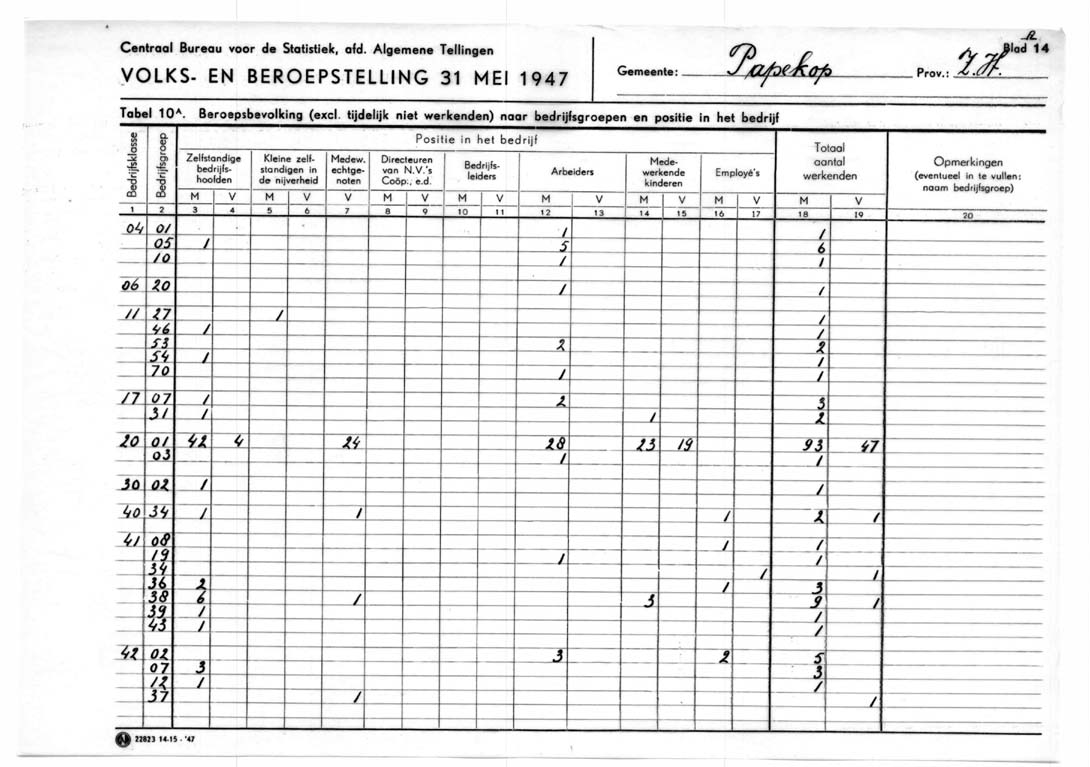 R
Blad 14
Centraal Bureau voor de Statistiek, afd. Algemene Tellingen
VOLKS- EN BEROEPSTELLING 31 MEI 1947
Gemeente: Papekop Prov.: Z.H.
Tabel 10A. Beroepsbevolking (excl. tijdelijk niet werkenden) naar bedrijfsgroepen en positie in het bedrijf
Bedrijfsklasse Bedrijfsgroep Positie in het bedrijf Totaal aantal werkenden Opmerkingen (eventueel in te vullen: naam bedrijfsgroep)
Zelfstandige bedrijfs-hoofden Kleine zelf-standigen in de nijverheid Medew. echtge-noten Directeuren van N.V.'s Coöp., e.d. Bedrijfs-leiders Arbeiders Mede-werkende kinderen Employé's
M V M V V M V M V M V M V M V M V
1 2 3 4 5 6 7 8 9 10 11 12 13 14 15 16 17 18 19 20
04 01 1 1
05 1 5 6
10 1 1
06 20 1 1
11 27 1 1
46 1 1
53 2 2
54 1 1
70 1 1
17 07 1 2 3
31 1 1 2
20 01 42 4 24 28 23 19 93 47
03 1 1
30 02 1 1
40 34 1 1 1 2 1
41 08 1 1
19 1 1
34 1 1
36 2 1 3
38 6 1 3 9 1
39 1 1
43 1 1
42 02 3 2 5
07 3 3
12 1 1
37 1 1
22823 14-15 - '47